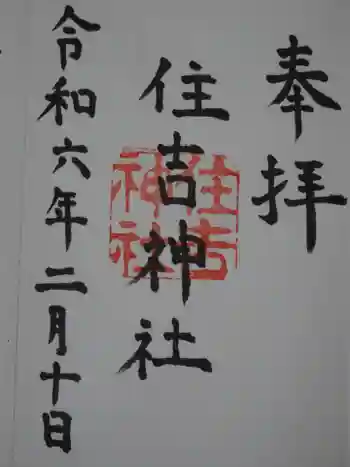 奉拝
住吉神社
住吉神社
令和六年二月十日